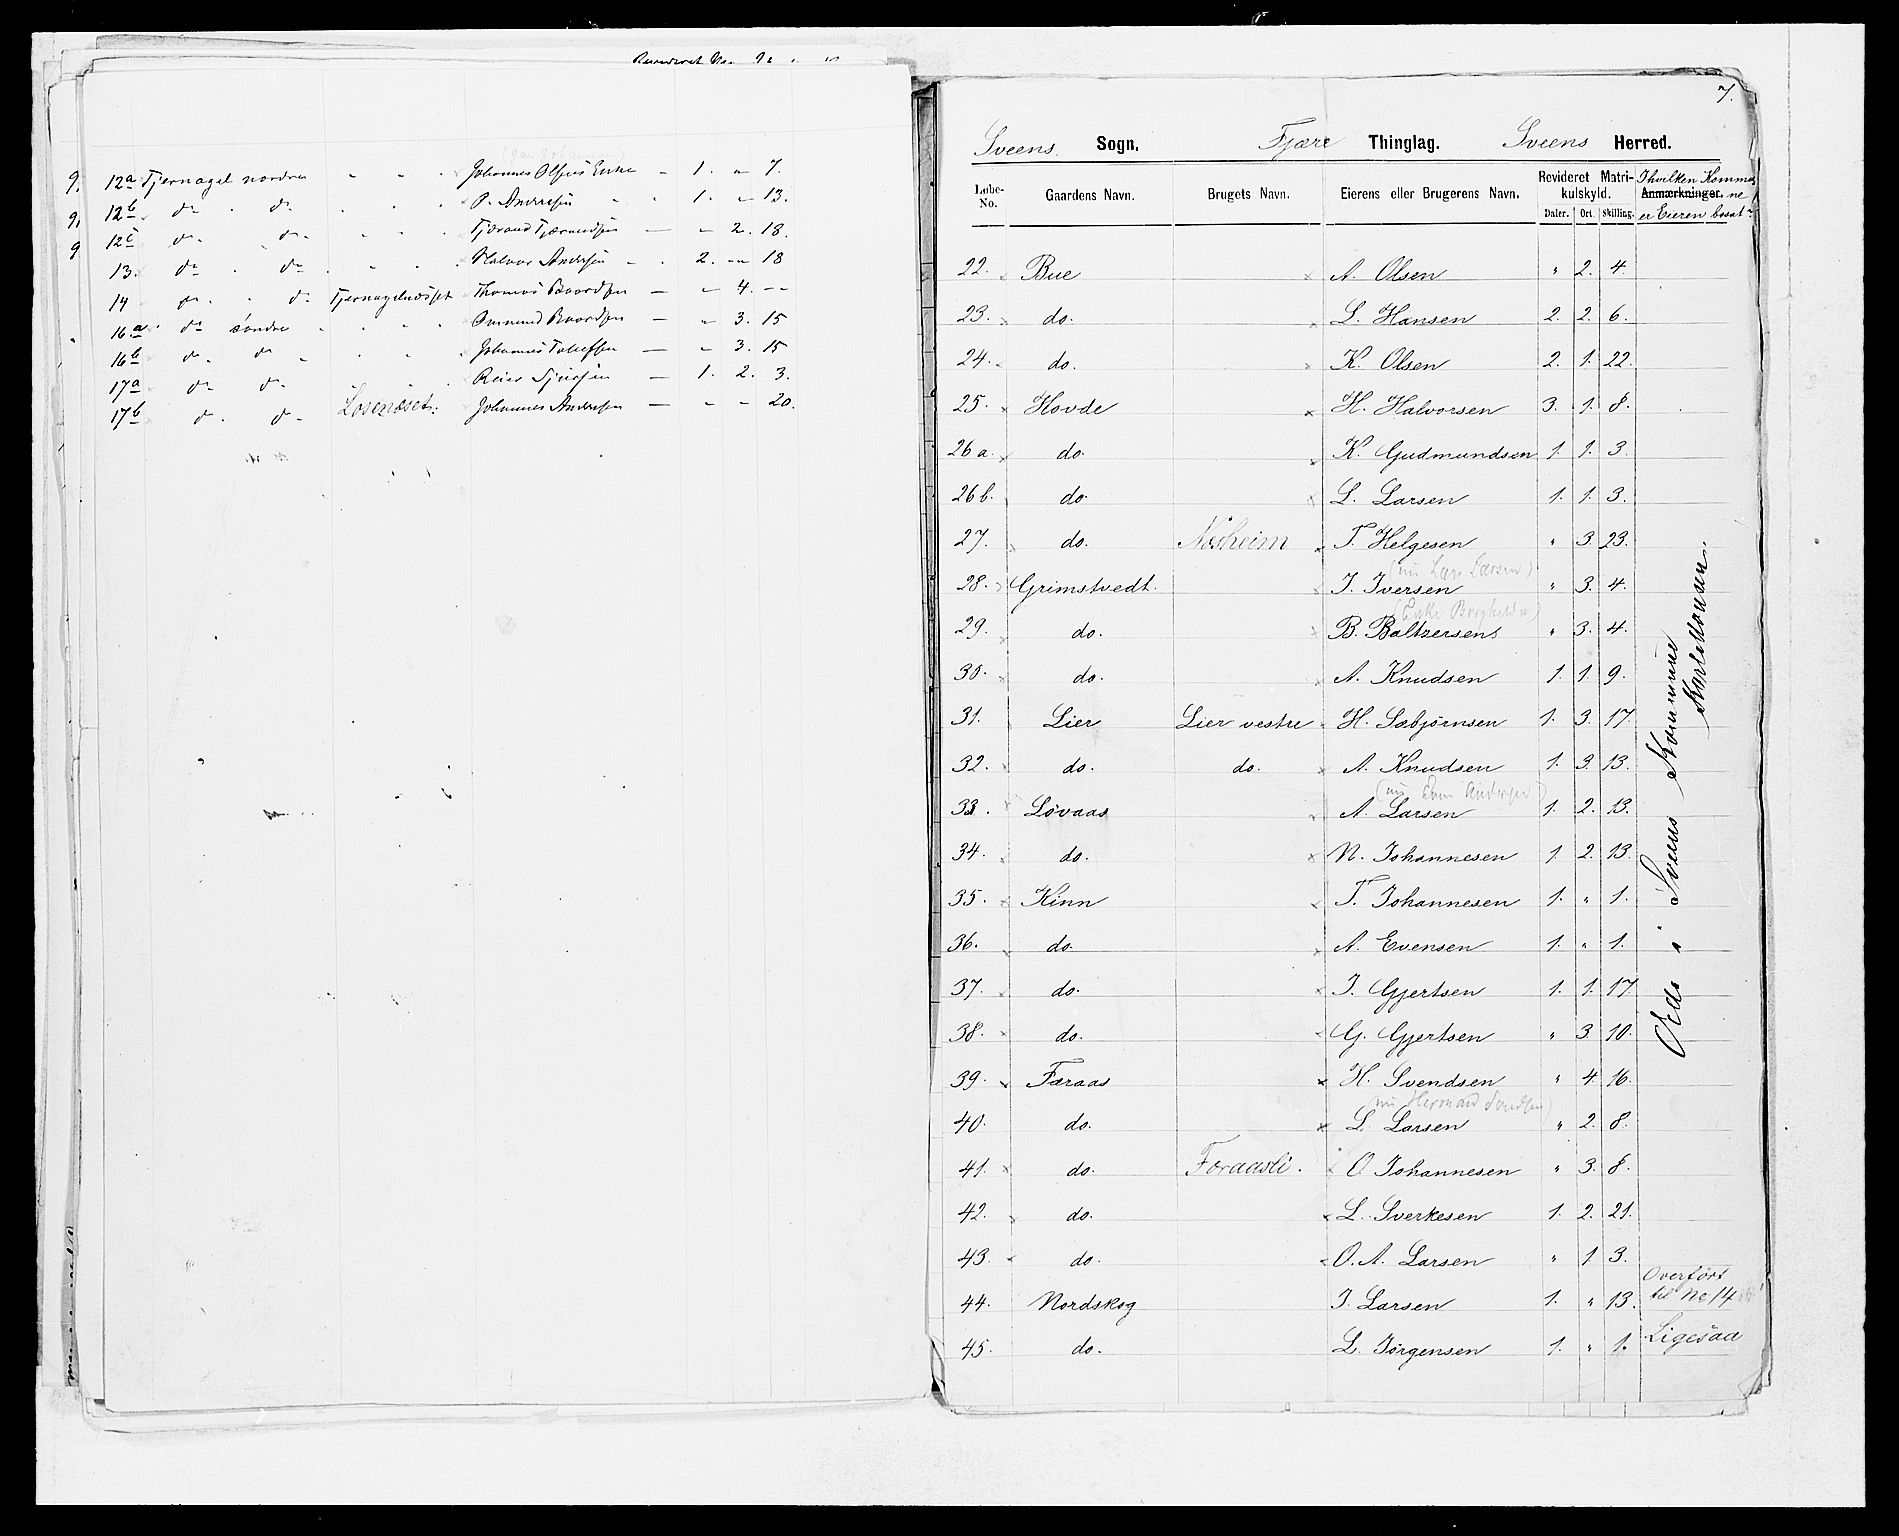 9. 12a Tjernagel nordre " " Johannes Olsens Enke - 1. " 7.
9. 12b do. do. P. Andersen 1. - 13.
9 12c do. do. Tjærand Tjærandsen - - 2. 18.
13. do. do. Halvor Andersen - 2. - 18
14 do. do. Tjernagelnæsset Thomas Baardsen - - 4. - -
16a do. søndre Ommund Baardsen - " 3. 15
16b do. do. Johannes Tollefsen - - 3. 15
17a do. do. Reier Sjursen - 1. 2. 3.
17b do. do. Losenæset. Johannes Andersen - - - 20.
7.
Sveens Sogn. Fjære Thinglag. Sveens Herred.
Løbe-No. Gaardens Navn. Brugets Navn. Eierens eller Brugerens Navn. Revideret Matrikulskyld. Daler. Ort. Skilling. Anmærkninger. I hvilken Kommune er Eieren bosat
22. Bue A. Olsen " 2. 4.
23. do. L. Hansen 2. 2. 6.
24. do. K. Olsen 2. 1. 22.
25. Hovde H. Halvorsen 3. 1. 8.
26 a. do. K. Gudmundsen 1. 1. 3.
26 b. do. L. Larsen 1. 1. 3.
27. do. Næsheim T. Helgesen " 3. 23.
(nu Lars Larsen)
28. Grimstvedt. I. Iversen " 3. 4.
29. do. B. Baltzersens " 3. 4.
30. do. A. Knudsen 1. 1. 9.
31. Lier Lier vestre H. Sæbjørnsen 1. 3. 17.
32. do. do. A. Knudsen 1. 3. 13.
33. Løvaas A. Larsen 1. 2. 13.
34. do. N. Johannesen 1. 2. 13.
35. Kinn T. Johannesen 1. " 1.
36. do. A. Evensen 1. " 1.
37. do. I. Gjertsen 1. 1. 17
38. do. G. Gjertsen " 3. 10.
39. Færaas H. Svendsen " 4. 16.
40. do. L. Larsen " 2. 8.
41. do. Færaasli. O Johannesen " 3. 8.
42. do. L. Sverkesen 1. 2. 21.
43. do. O. A. Larsen " 1 3.
44. Nordskog I. Larsen 1. " 13. Overført til No 14
45. do. L. Jørgensen 1. " 1. Ligesaa
i Sveens Kommune